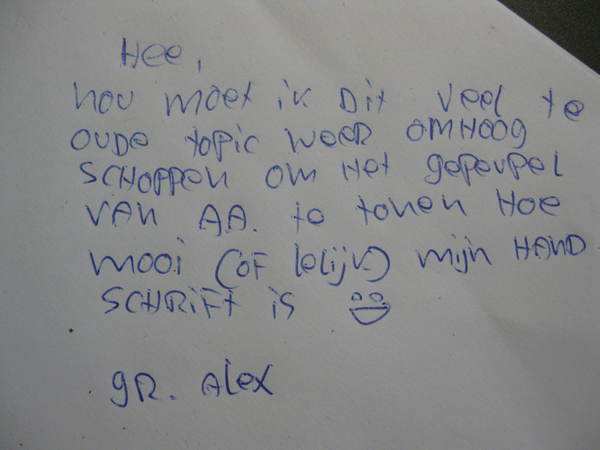 Hee,
nou moet ik Dit veel te
oude topic weer omhoog
schoppen om het gepeupel
van A.A. te tonen hoe
mooi (of lelijk) mijn hand
schrift is
gr. Alex